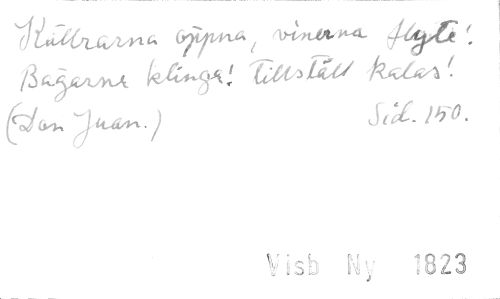 Källrarna öppna, vinerna flyte!
Bägarne klinga! Tillställ kalas!
(Don Juan.) Sid. 150.
Visb Ny 1823